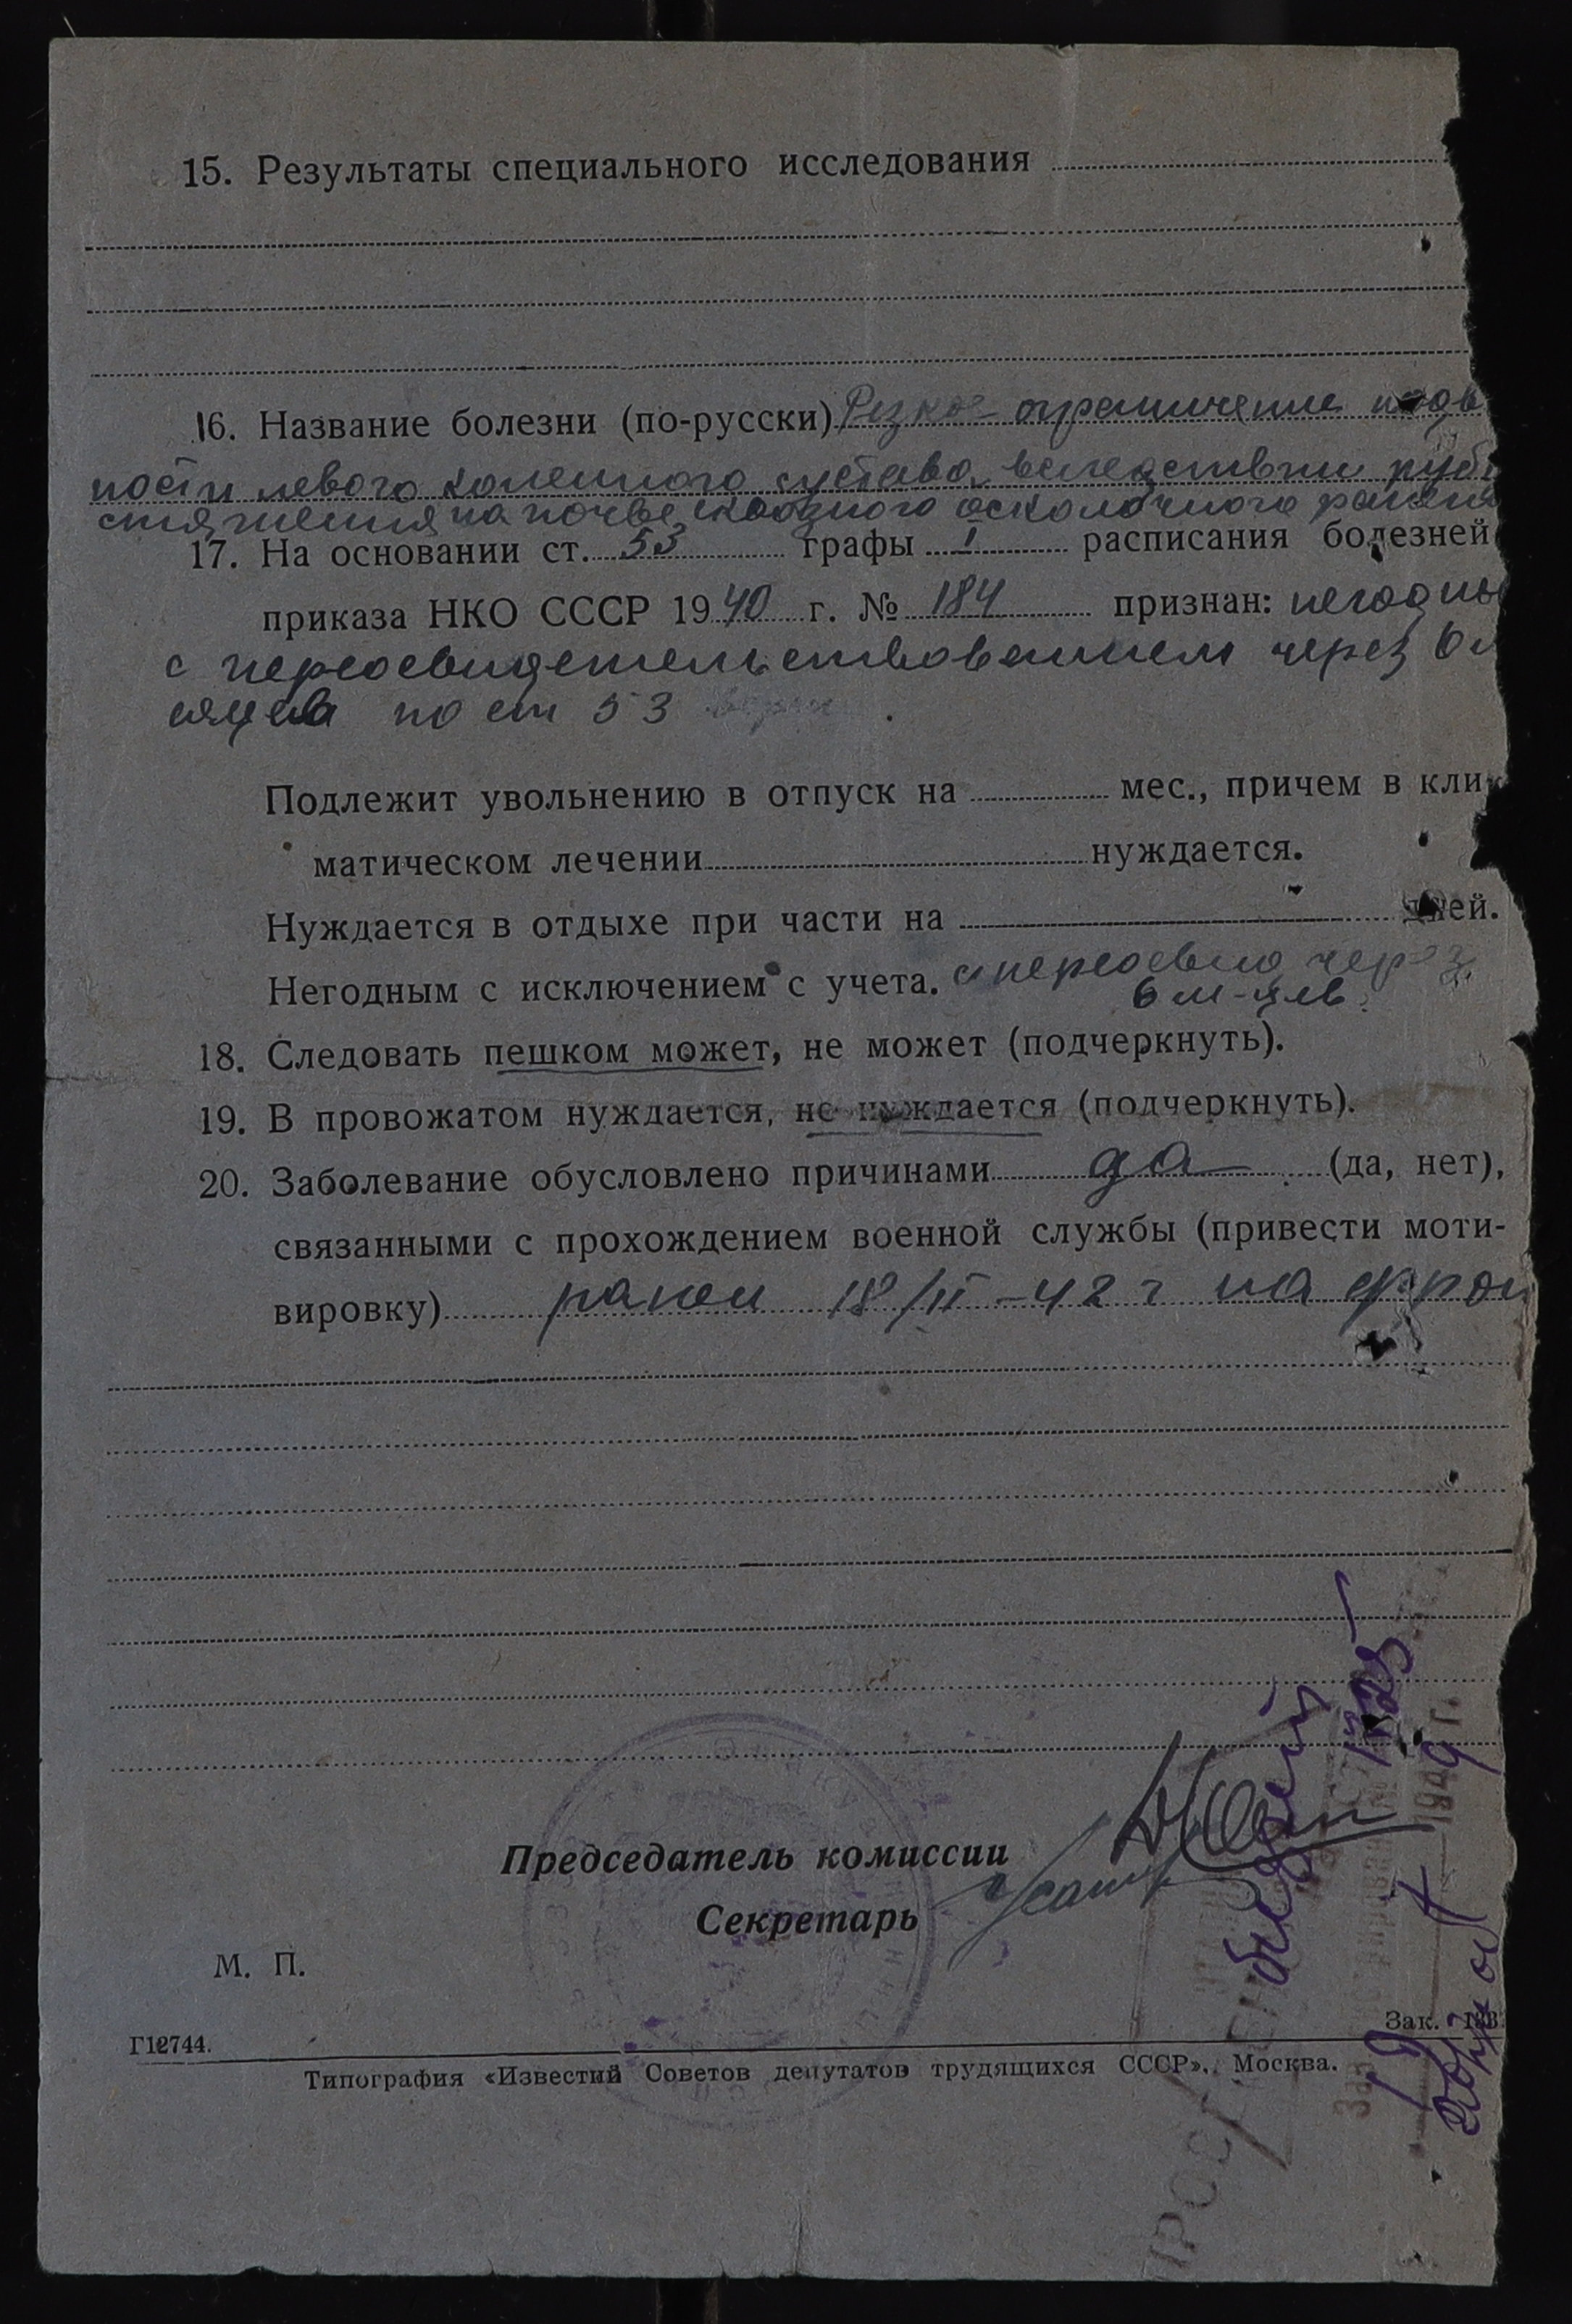 15. Результаты специального исследования
16. Название болезни (по-русски) Резкое ограничение подв
ности левого коленного сустава вследствии рубц
стяжения на почве сквозного осколочного ранения
17. На основании ст. 53 графы I расписания болезней
приказа НКО СССР 1940 г. № 184 признан: негодны
с переосвидетельствованием через 6 м
есяцев по ст 53
Подлежит увольнению в отпуск на мес., причем в кли
матическом лечении нуждается.
Нуждается в отдыхе при части на дней.
Негодным с исключением с учета. с переосвид через
6 м-цев.
18. Следовать пешком может, не может (подчеркнуть).
19. В провожатом нуждается, не нуждается (подчеркнуть).
20. Заболевание обусловлено причинами да (да, нет),
связанными с прохождением военной службы (привести моти-
вировку) ранен 18/II-42 г на фрон
Председатель комиссии
Секретарь
М. П.
Г12744.
Зак.
Типография «Известий Советов депутатов трудящихся СССР», Москва.